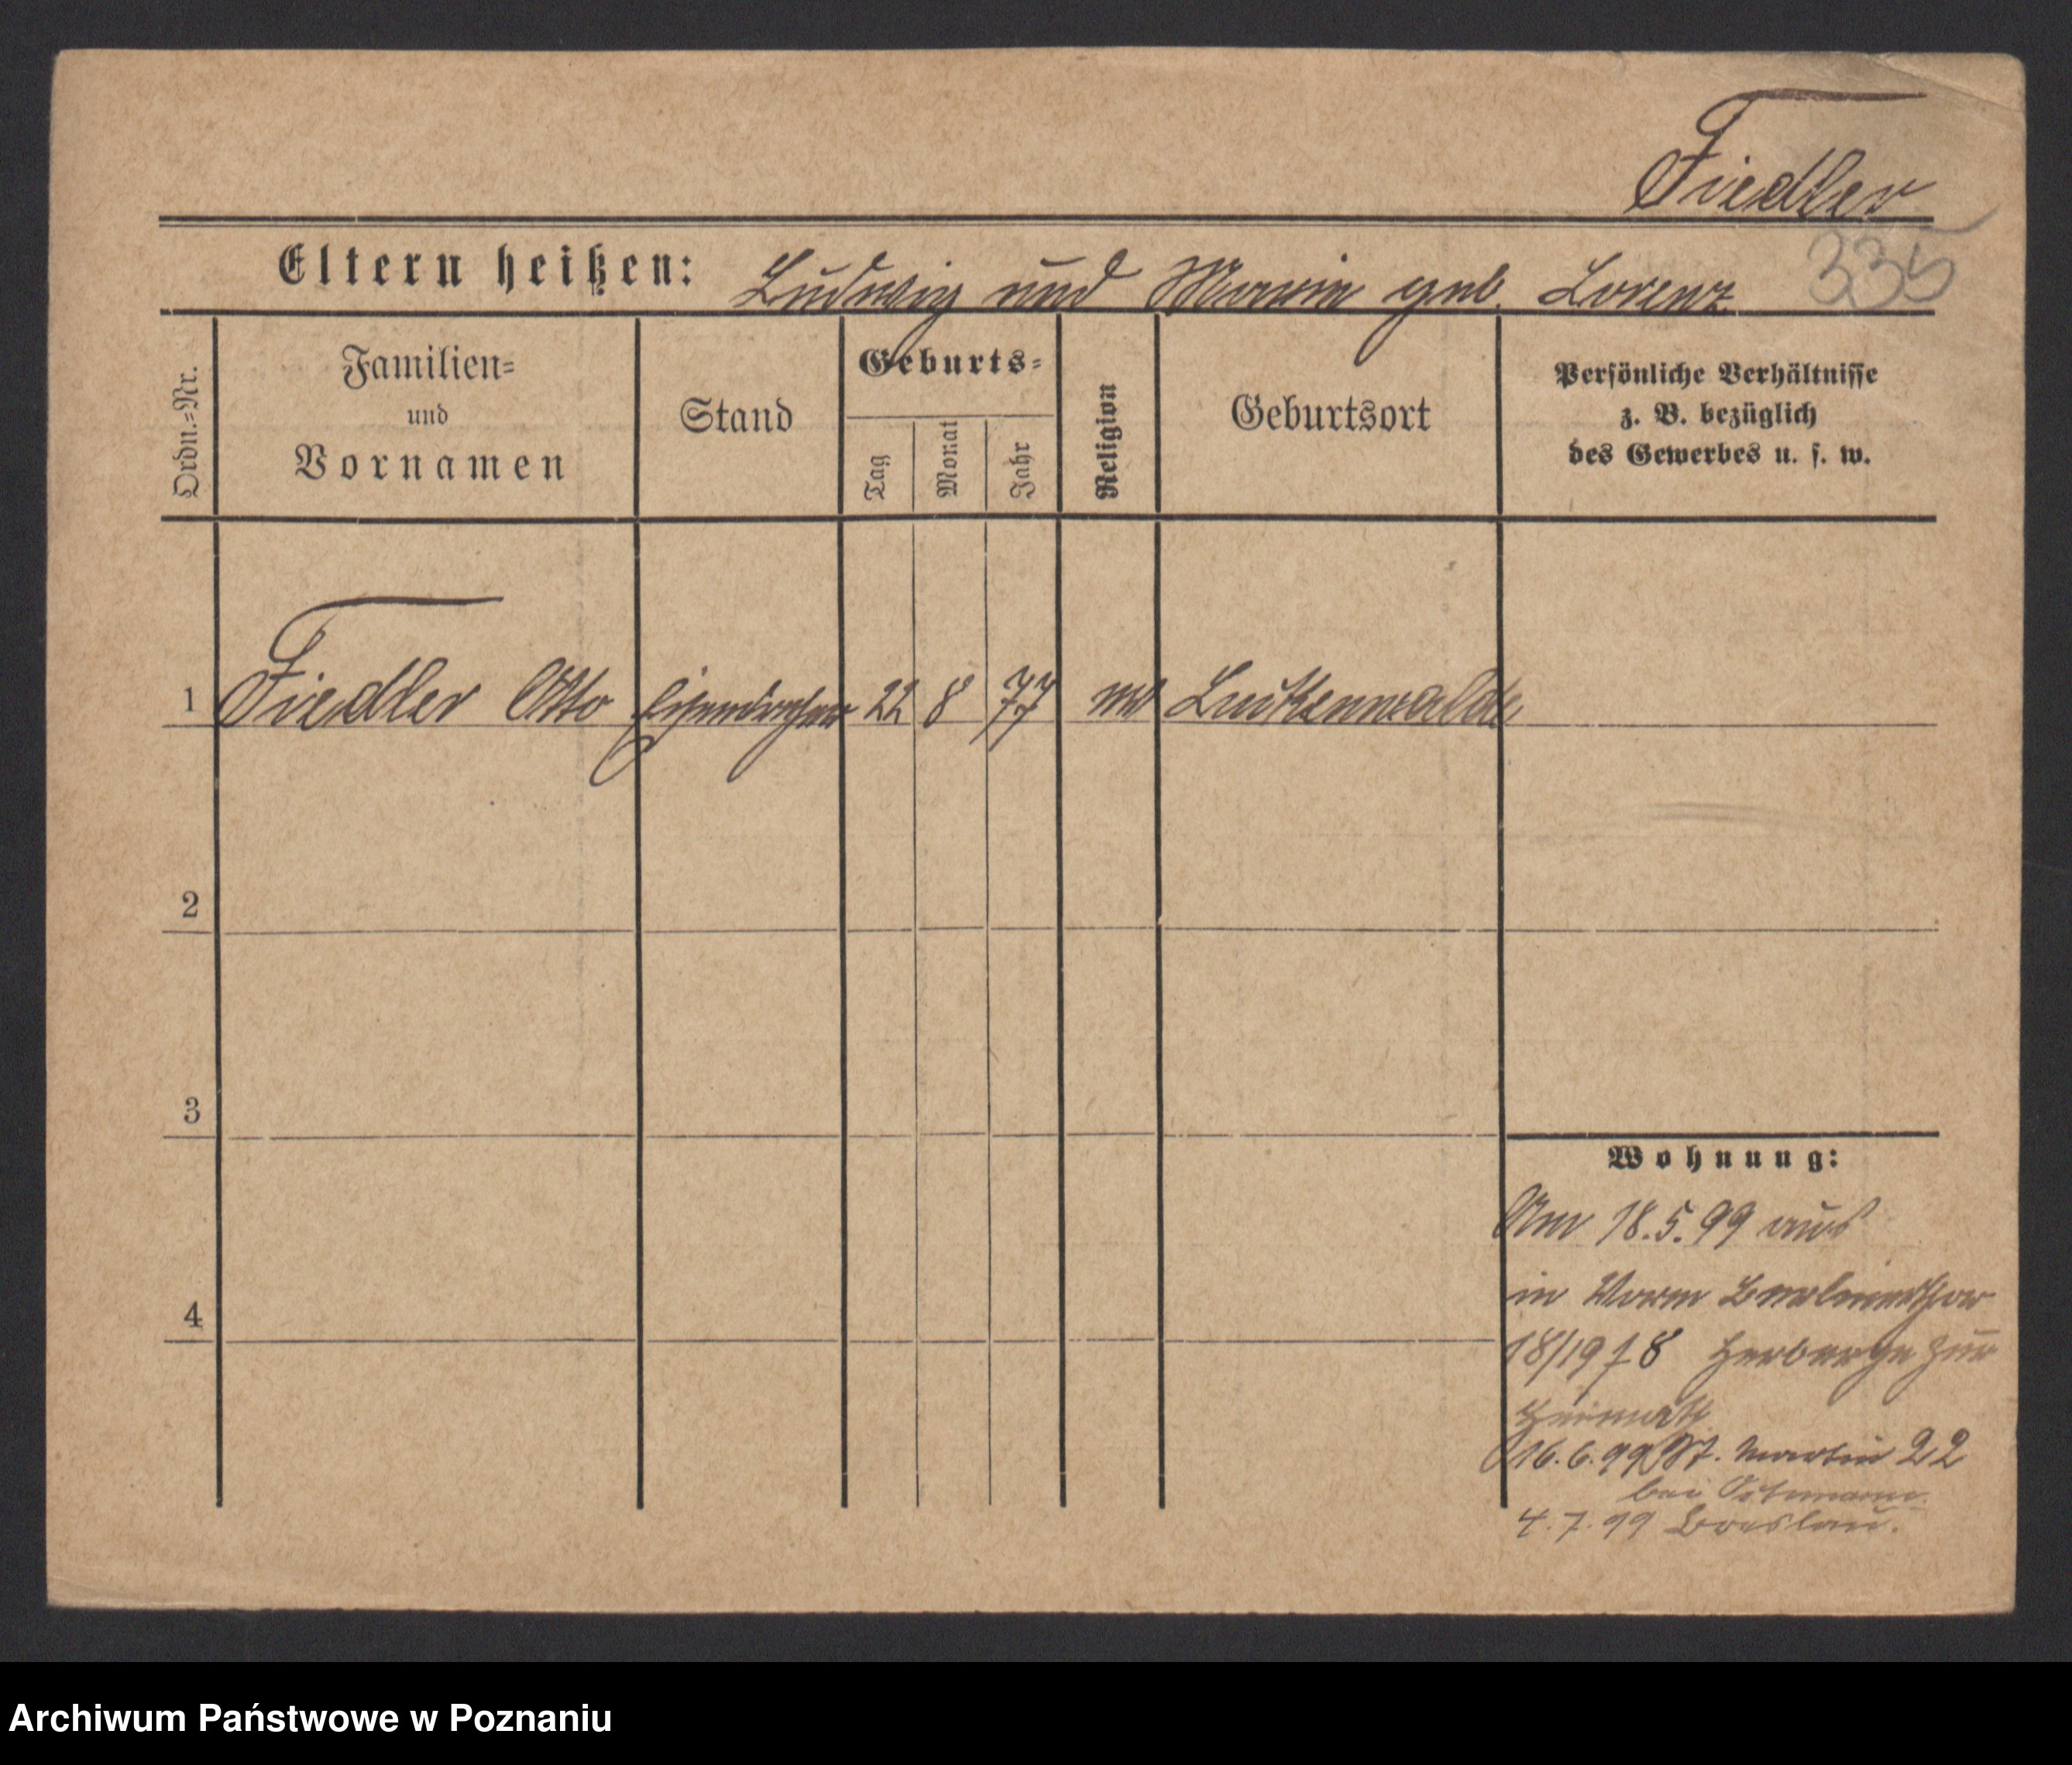 Fiedler
335
Eltern heißen: Ludwig und Marie geb. Lorenz
Ordn.=Nr.
Familien=
und
Vornamen
Stand
Geburts=
Tag
Monat
Jahr
Religion
Geburtsort
Persönliche Verhältnisse
z. B. bezüglich
des Gewerbes u. s. w.
1 Fiedler Otto Eisendreher 22 8 77 Luckenwalde
2
3
4
Wohnung:
Am 18.5.99 aus
in Berlinerthor
18/19 Herberge zur
Heimath
16.6.99 St. Martin 22
bei
4.7.99 Breslau.
Archiwum Państwowe w Poznaniu